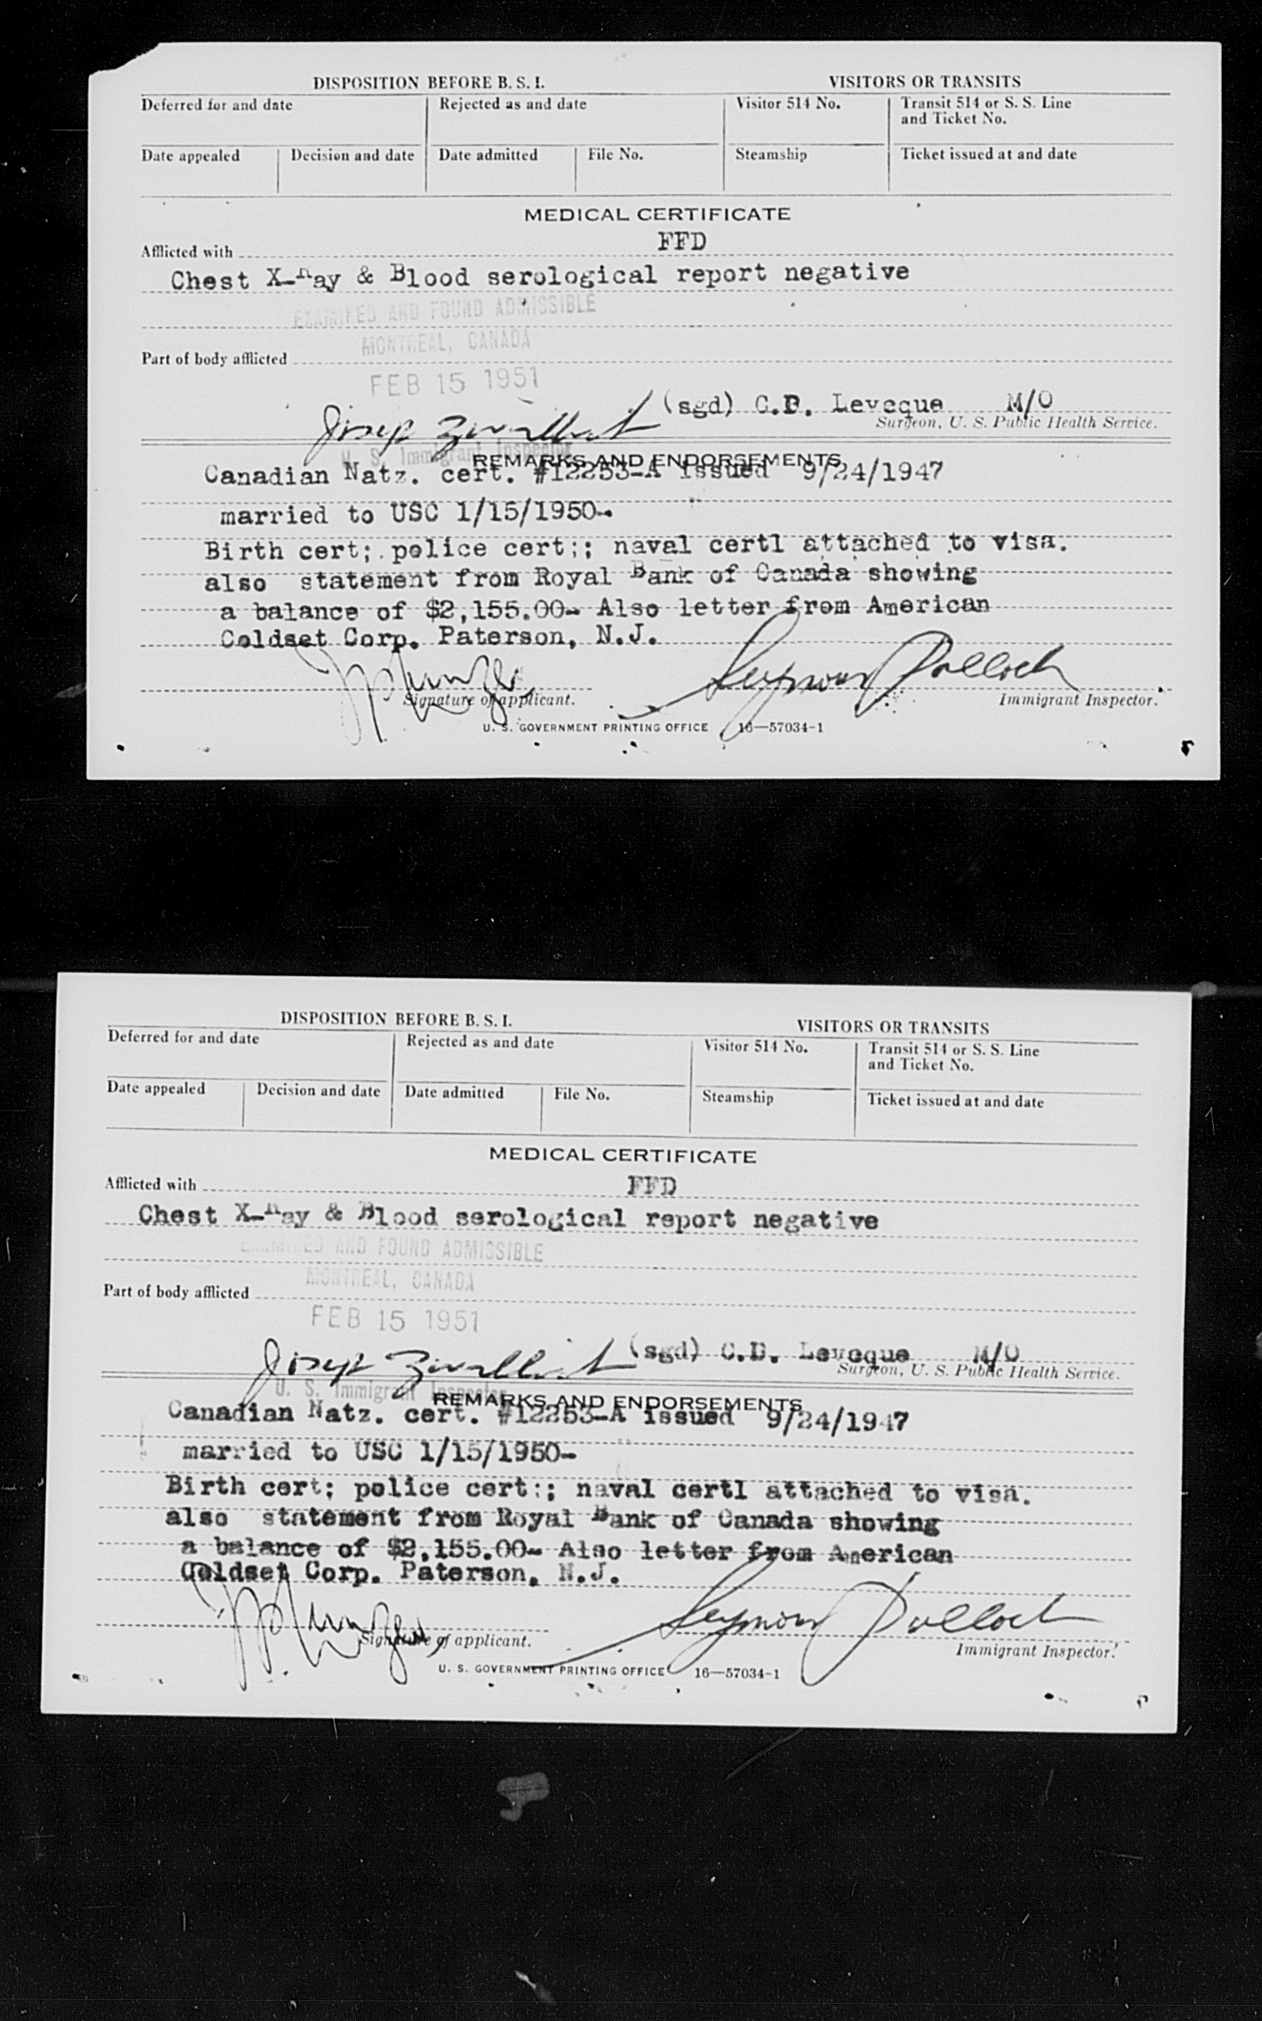 DISPOSITION BEFORE B. S. I. VISITORS OR TRANSITS
Deferred for and date Rejected as and date Visitor 514 No. Transit 514 or S. S. Line
and Ticket No.
Date appealed Decision and date Date admitted File No. Steamship Ticket issued at and date
MEDICAL CERTIFICATE
Afflicted with FFD
Chest X-Ray & Blood serological report negative
EXAMINED AND FOUND ADMISSIBLE
MONTREAL, CANADA
Part of body afflicted
FEB 15 1951
(sgd) C.D. Leveque M/O
Surgeon, U. S. Public Health Service.
U. S. Immigrant Inspector
REMARKS AND ENDORSEMENTS
Canadian Natz. cert. #12253-A issued 9/24/1947
married to USC 1/15/1950-
Birth cert; police cert:; naval certl attached to visa.
also statement from Royal Bank of Canada showing
a balance of $2,155.00- Also letter from American
Coldset Corp. Paterson, N.J.
Seymour Pollock
Signature of applicant. Immigrant Inspector.
U. S. GOVERNMENT PRINTING OFFICE 16—57034-1
DISPOSITION BEFORE B. S. I. VISITORS OR TRANSITS
Deferred for and date Rejected as and date Visitor 514 No. Transit 514 or S. S. Line
and Ticket No.
Date appealed Decision and date Date admitted File No. Steamship Ticket issued at and date
MEDICAL CERTIFICATE
Afflicted with FFD
Chest X-Ray & Blood serological report negative
EXAMINED AND FOUND ADMISSIBLE
MONTREAL, CANADA
Part of body afflicted
FEB 15 1951
(sgd) C.D. Leveque M/O
Surgeon, U. S. Public Health Service.
U. S. Immigrant Inspector
REMARKS AND ENDORSEMENTS
Canadian Natz. cert. #12253-A issued 9/24/1947
married to USC 1/15/1950-
Birth cert; police cert:; naval certl attached to visa.
also statement from Royal Bank of Canada showing
a balance of $2,155.00- Also letter from American
Coldset Corp. Paterson, N.J.
Seymour Pollock
Signature of applicant. Immigrant Inspector.
U. S. GOVERNMENT PRINTING OFFICE 16—57034-1